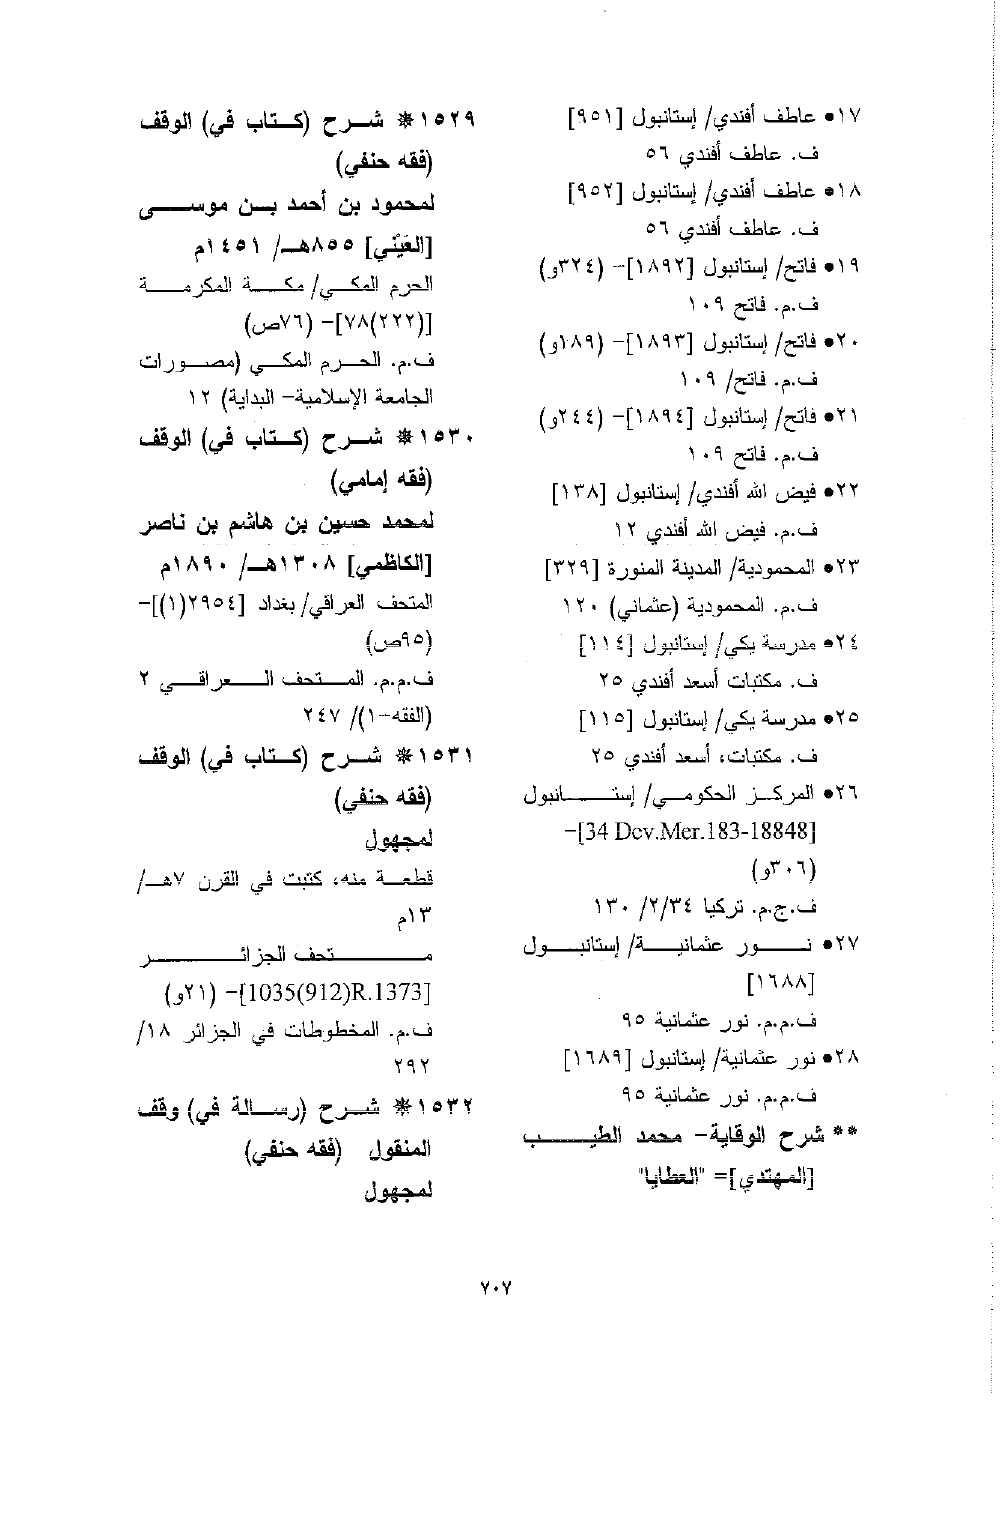 ١٧• عاطف أفندي/ إستانبول [٩٥١]
ف. عاطف أفندي ٥٦
١٨• عاطف أفندي/ إستانبول [٩٥٢]
ف. عاطف أفندي ٥٦
١٩• فاتح/ إستانبول [١٨٩٢]- (٣٢٤و)
ف.م. فاتح ١٠٩
٢٠• فاتح/ إستانبول [١٨٩٣]- (١٨٩و)
ف.م. فاتح/ ١٠٩
٢١• فاتح/ إستانبول [١٨٩٤]- (٢٤٤و)
ف.م. فاتح ١٠٩
٢٢• فيض الله أفندي/ إستانبول [١٣٨]
ف.م. فيض الله أفندي ١٢
٢٣• المحمودية/ المدينة المنورة [٣٢٩]
ف.م. المحمودية (عثماني) ١٢٠
٢٤• مدرسة يكي/ إستانبول [١١٤]
ف. مكتبات أسعد أفندي ٢٥
٢٥• مدرسة يكي/ إستانبول [١١٥]
ف. مكتبات، أسعد أفندي ٢٥
٢٦• المركز الحكومي/ إستانبول
[34 Dev.Mer.183-18848]-
(٣٠٦و)
ف.ج.م. تركيا ٢/٣٤/ ١٣٠
٢٧• نور عثمانية/ إستانبول
[١٦٨٨]
ف.م.م. نور عثمانية ٩٥
٢٨• نور عثمانية/ إستانبول [١٦٨٩]
ف.م.م. نور عثمانية ٩٥
** شرح الوقاية- محمد الطيب
[المهتدي]= "العطايا"
١٥٢٩* شرح (كتاب في) الوقف
(فقه حنفي)
لمحمود بن أحمد بن موسى
[العَيْني] ٨٥٥هـ/ ١٤٥١م
الحرم المكي/ مكة المكرمة
[(٢٢٢)٧٨]- (٧٦ص)
ف.م. الحرم المكي (مصورات
الجامعة الإسلامية- البداية) ١٢
١٥٣٠* شرح (كتاب في) الوقف
(فقه إمامي)
لمحمد حسين بن هاشم بن ناصر
[الكاظمي] ١٣٠٨هـ/ ١٨٩٠م
المتحف العراقي/ بغداد [٢٩٥٤(١)]-
(٩٥ص)
ف.م.م. المتحف العراقي ٢
(الفقه-١)/ ٢٤٧
١٥٣١* شرح (كتاب في) الوقف
(فقه حنفي)
لمجهول
قطعة منه، كتبت في القرن ٧هـ/
١٣م
متحف الجزائر
[1035(912)R.1373]- (٢١و)
ف.م. المخطوطات في الجزائر ١٨/
٢٩٢
١٥٣٢* شرح (رسالة في) وقف
المنقول (فقه حنفي)
لمجهول
٧٠٧